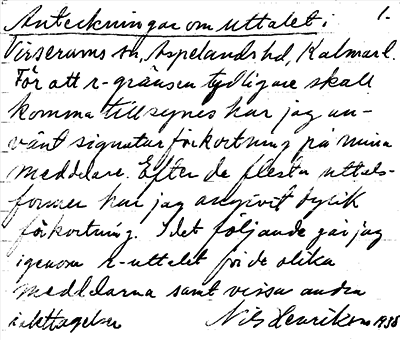 Anteckningar om uttalet i 1.
Virserums sn, Aspelands hd, Kalmar l.
För att r-gränsen tydligare skall
komma till synes har jag an-
vänt signaturförkortning på mina
meddelare. Efter de flesta uttals-
former har jag angivit dylik
förkortning. I det följande går jag
igenom r-uttalet för de olika
meddelarna samt vissa andra
iakttagelser Nils Henrikson 1938